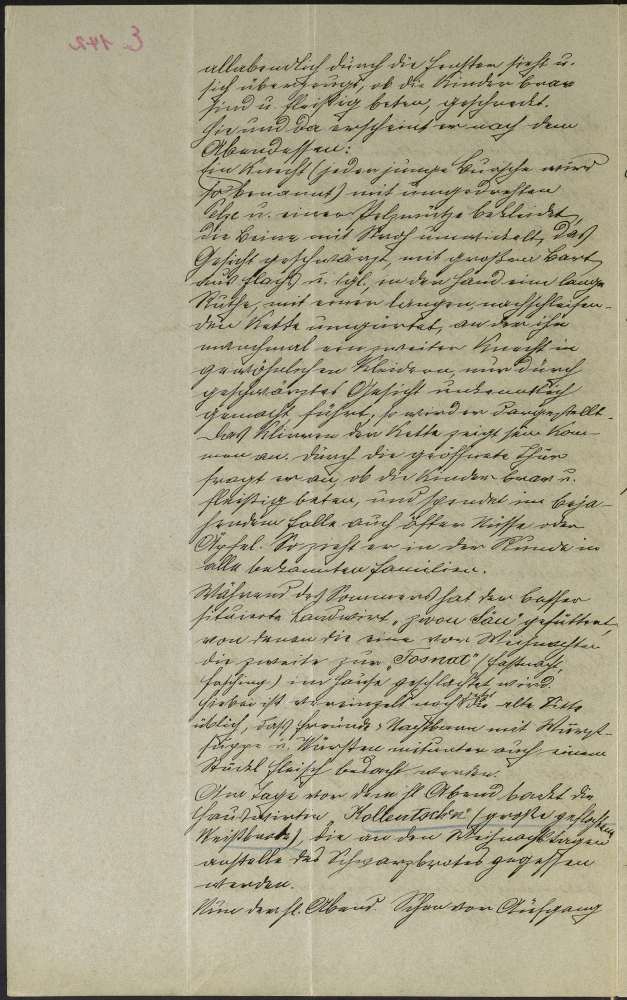 E 142
allabendlich durch die Fenster sieht u.
sich überzeugt, ob die Kinder brav
sind u. fleißig beten, geschreckt.
Hie und da erscheint er nach dem
Abendessen:
Ein Knecht (jeder junge Bursche wird
so benannt) mit umgedrehtem
Pelze u. einer Pelzmütze bekleidet,
die Beine mit Stroh umwickelt, das
Gesicht geschwärzt, mit großem Bart
aus Flachs u. dgl. in der Hand eine lange
Ruthe, mit einer langen, nachschleifen-
den Kette umgürtet, an der ihn
manchmal ein zweiter Knecht in
gewöhnlichen Kleidern, nur durch
geschwärztes Gesicht unkenntlich
gemacht führt, so wird er dargestellt.
Das Klirren der Kette zeigt sein Kom-
men an. Durch die geöffnete Thür
fragt er an, ob die Kinder brav u.
fleißig beten, und spendet im beja-
henden Falle auch öfter Nüsse oder
Äpfel. So zieht er in der Runde in
alle bekannten Familien.
Während des Sommers hat der besser
situierte Landwirt „zwoa Säu" gefüttert,
von denen die eine vor Weihnachten
die zweite zur „Fosnat" (Fastnacht,
Fasching) im Hause geschlachtet wird.
Hiebei ist vereinzelt noch die alte Sitte
üblich, daß Freunde & Nachbarn mit Wurst-
suppe u. Würsten mitunter auch einem
Stückl Fleisch bedacht werden.
Am Tage vor dem hl. Abend backt die
Hauswirtin „Kollentschn" (große geflochtene
Weißbrote), die an den Weihnachtstagen
anstelle des Schwarzbrotes gegessen
werden.
Nun der hl. Abend. Schon vor Aufgang